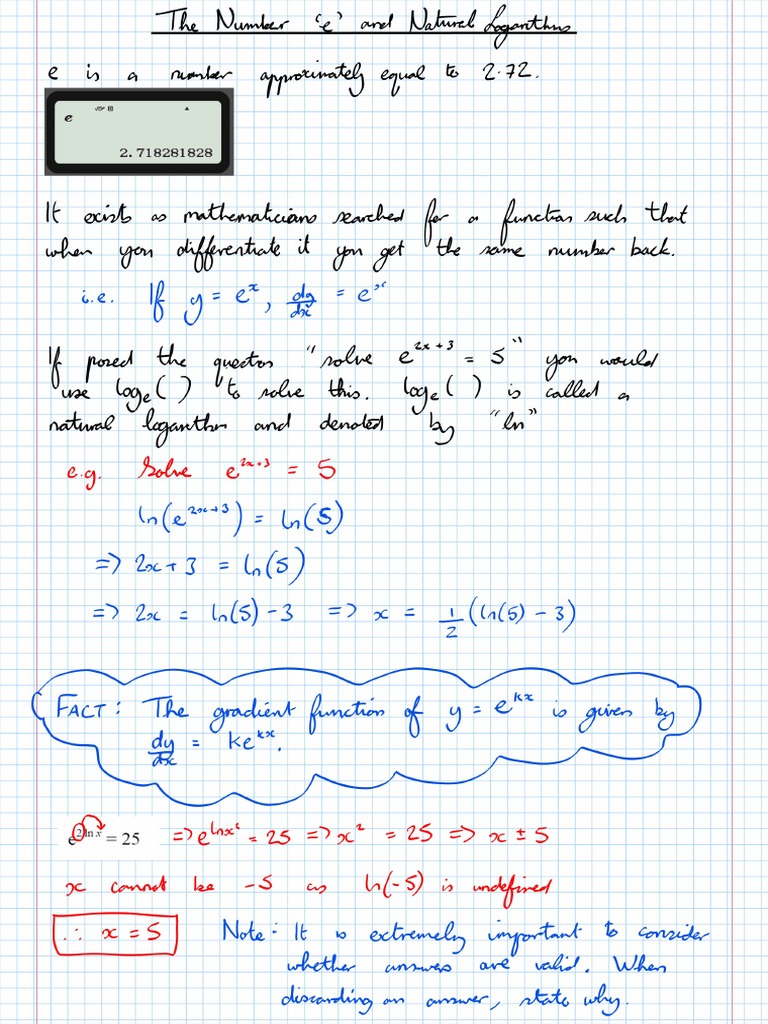 The Number 'e' and Natural Logarithms
e is a number approximately equal to 2.72.
e
2.718281828
It exists as mathematicians searched for a function such that
when you differentiate it you get the same number back.
i.e. If y = eˣ, dy/dx = eˣ
If posed the question "solve e²ˣ⁺³ = 5" you would
use logₑ( ) to solve this. logₑ( ) is called a
natural logarithm and denoted by "ln"
e.g. Solve e²ˣ⁺³ = 5
ln(e²ˣ⁺³) = ln(5)
=> 2x + 3 = ln(5)
=> 2x = ln(5) - 3 => x = 1/2 (ln(5) - 3)
FACT: The gradient function of y = eᵏˣ is given by
dy/dx = keᵏˣ.
e^(2 ln x) = 25 => e^(ln x²) = 25 => x² = 25 => x ± 5
x cannot be -5 as ln(-5) is undefined
∴ x = 5
Note: It is extremely important to consider
whether answers are valid. When
discarding an answer, state why.